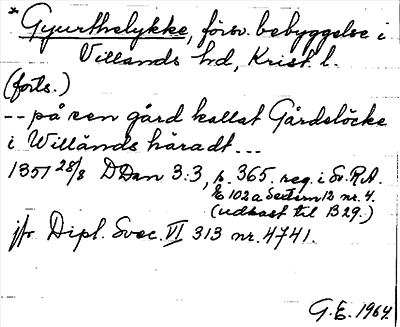 * Gyurthelykke, försv. bebyggelse i
Villands hd, Krist. l.
(forts.)
-- på een gård kallat Gårdslöcke
i Willånds häradt ...
1351 28/8 DDan 3:3, s. 365. reg. i Sv. R.A.
E 102 a Sectern 12 nr. 4.
(udkast til B 29.)
jfr Dipl. Svec. VI 313 nr. 4741.
G.E. 1964.